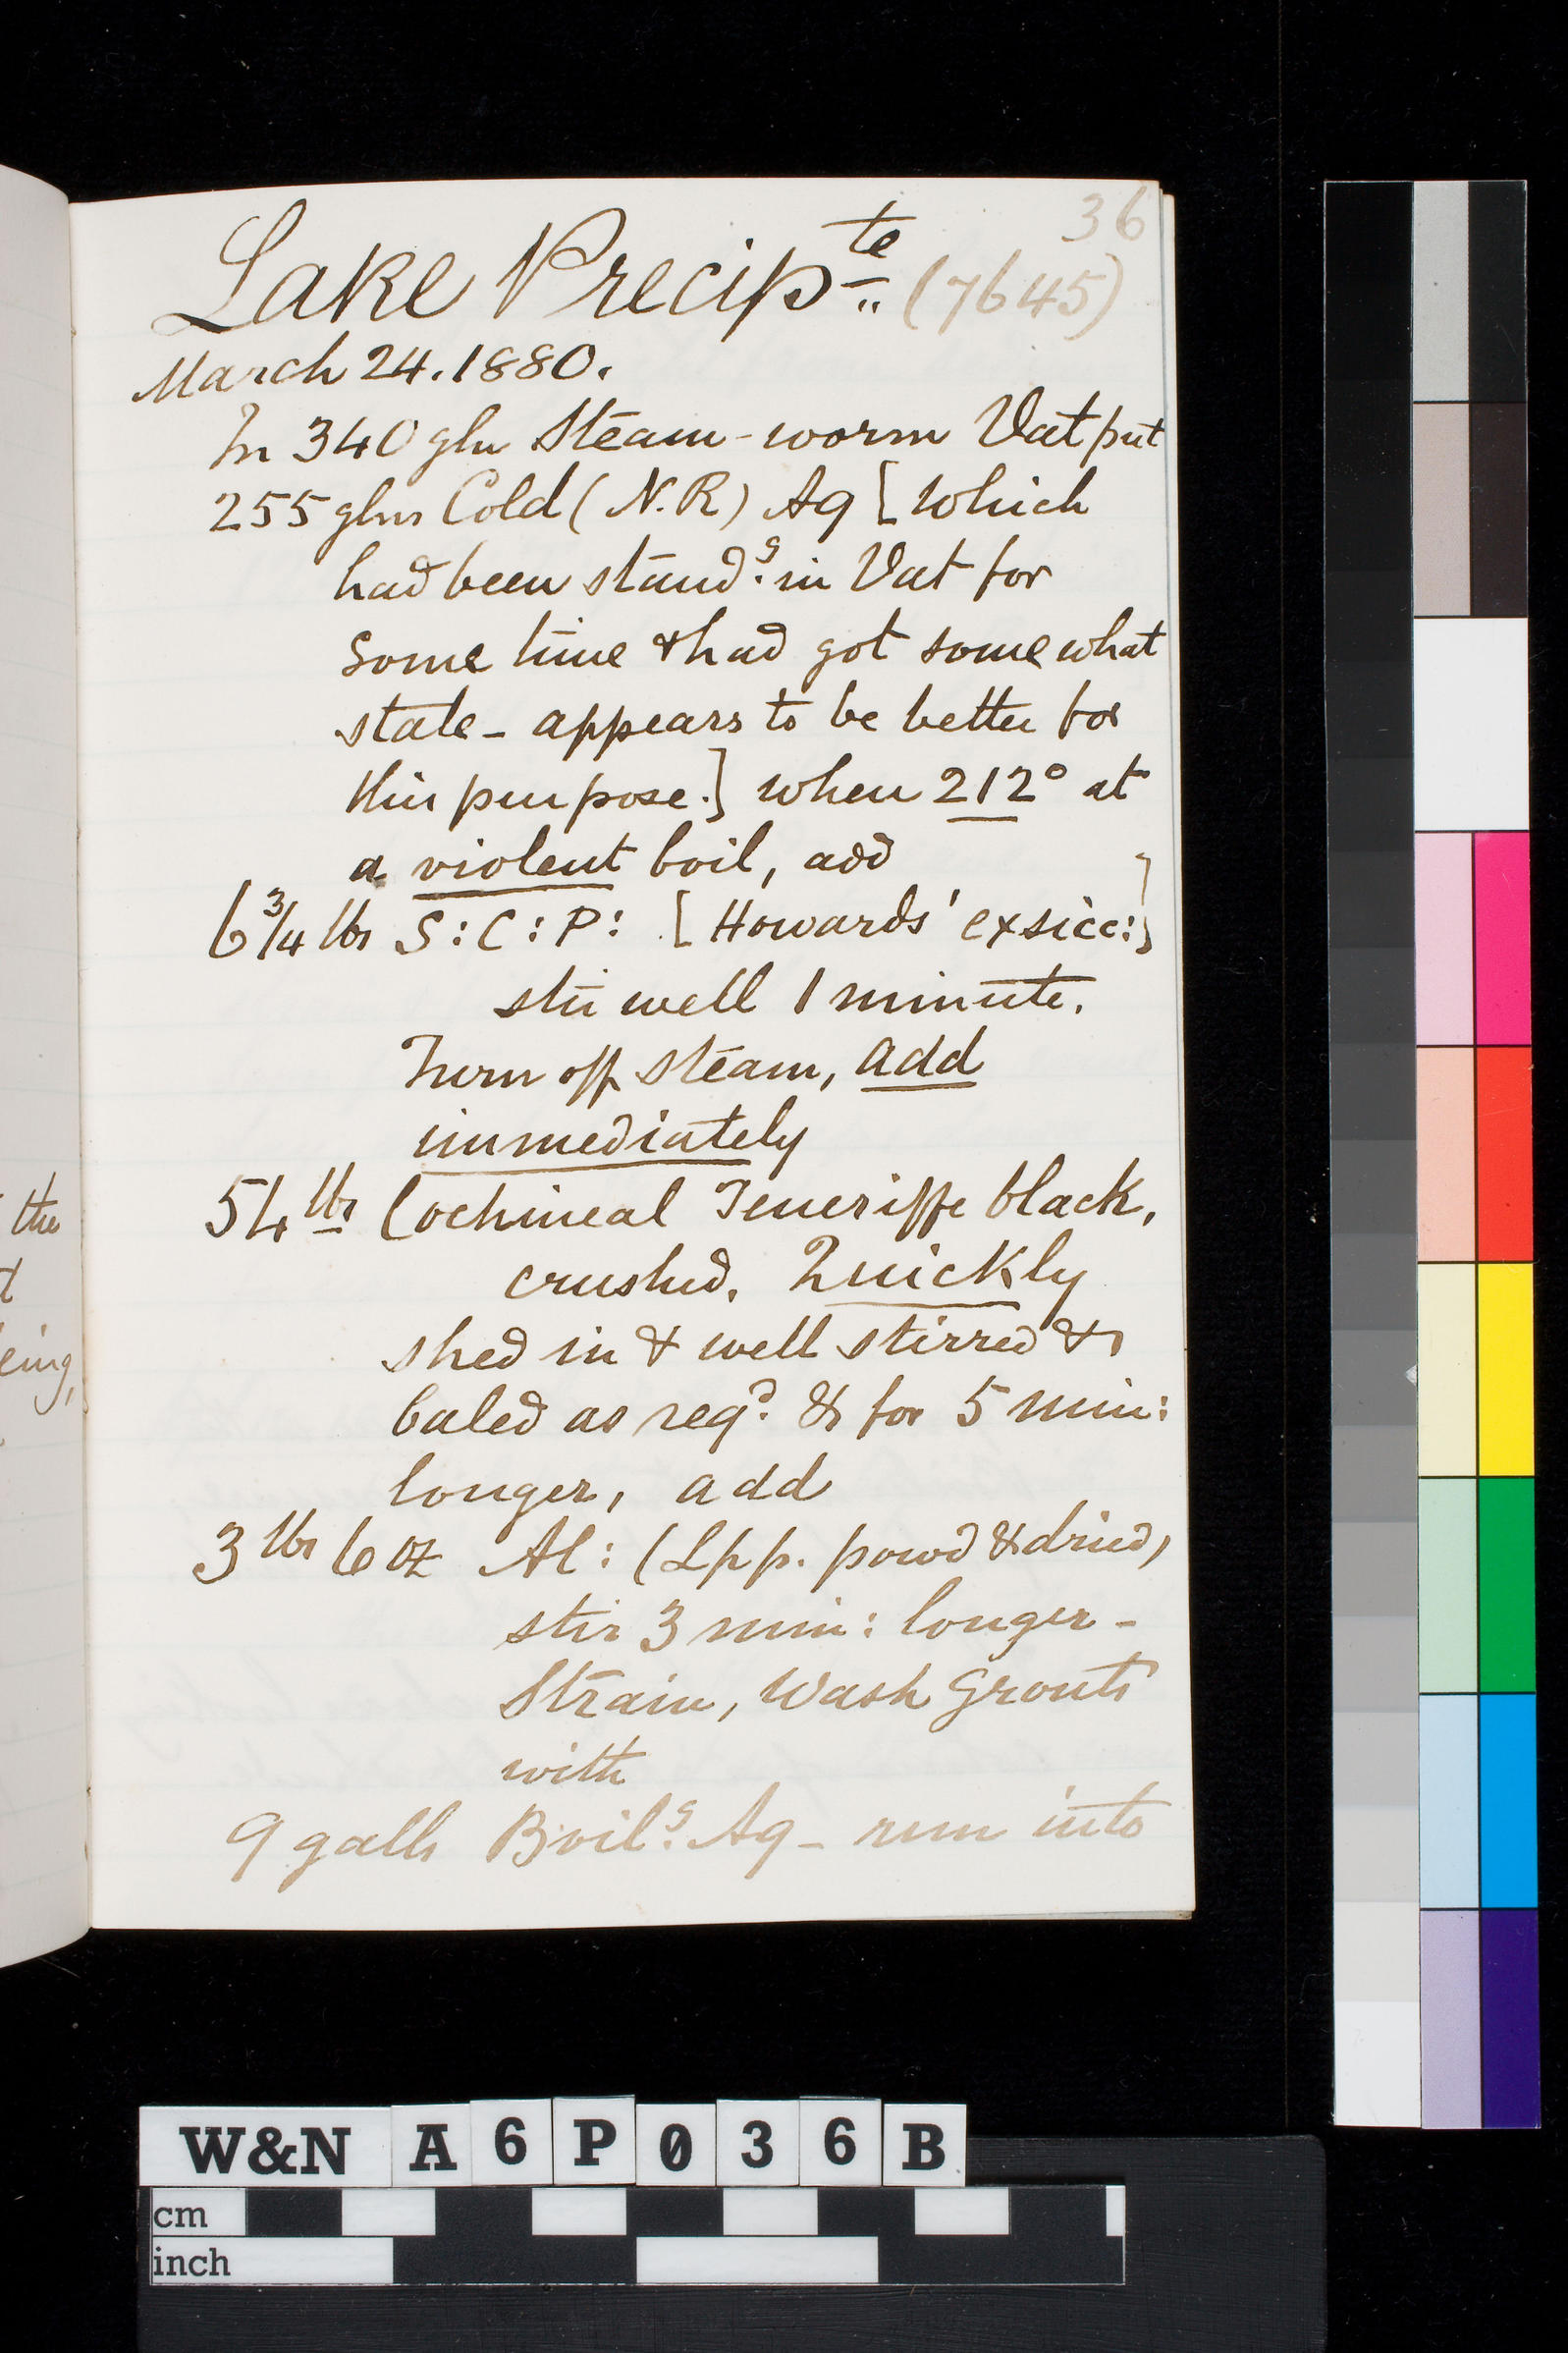 36
Lake Precipte (7645)
March 24. 1880.
In 340 gln Steam-worm Vat put
255 glns Cold (N.R) Aq [which
had been standg. in Vat for
some time & had got somewhat
stale - appears to be better for
this purpose.] when 212° at
a violent boil, add
6 3/4 lbs S:C:P: [Howards' exsicc:]
stir well 1 minute.
Turn off steam, add
immediately
54 lbs Cochineal Teneriffe black,
crushed. Quickly
shed in & well stirred &
baled as reqd. & for 5 min:
longer, add
3 lbs 6 oz Al: (Lpp. powd & dried)
stir 3 min: longer -
Strain, Wash Grouts
with
9 galls Boilg. Aq - run into
the
t
eing,
W&N A6P036B
cm
inch